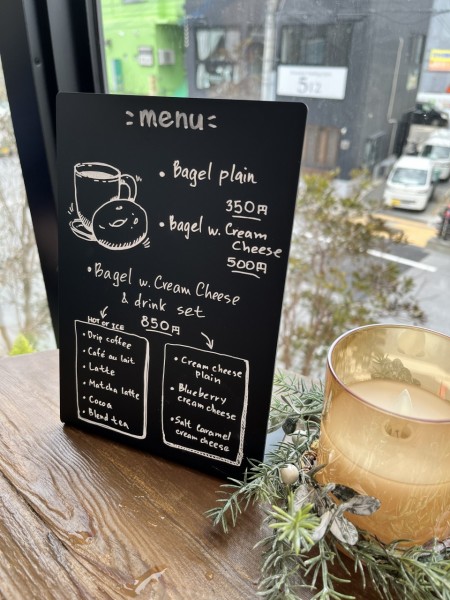 menu
• Bagel plain
350円
• Bagel w. Cream
Cheese
500円
• Bagel w. Cream Cheese
& drink set
850円
HOT or ICE
• Drip coffee
• Café au lait
• Latte
• Matcha latte
• Cocoa
• Blend tea
• Cream cheese
plain
• Blueberry
cream cheese
• Salt Caramel
cream cheese
512